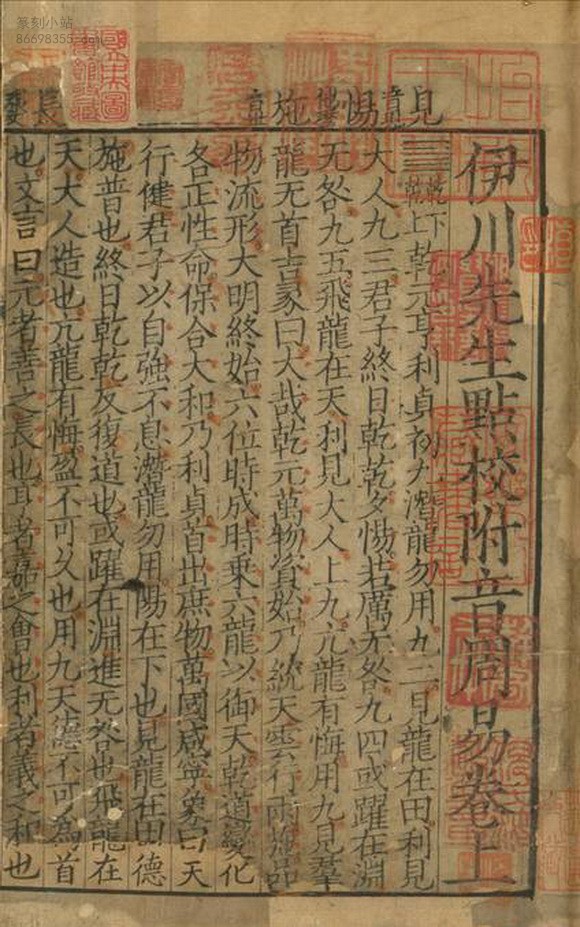 篆刻小站
伊川先生點校附音周易卷上
乾下乾上乾元亨利貞初九潛龍勿用九二見龍在田利見
大人九三君子終日乾乾夕惕若厲无咎九四或躍在淵
无咎九五飛龍在天利見大人上九亢龍有悔用九見羣
龍无首吉彖曰大哉乾元萬物資始乃統天雲行雨施品
物流形大明終始六位時成時乘六龍以御天乾道變化
各正性命保合大和乃利貞首出庶物萬國咸寧象曰天
行健君子以自強不息潛龍勿用陽在下也見龍在田德
施普也終日乾乾反復道也或躍在淵進无咎也飛龍在
天大人造也亢龍有悔盈不可久也用九天德不可為首
也文言曰元者善之長也亨者嘉之會也利者義之和也